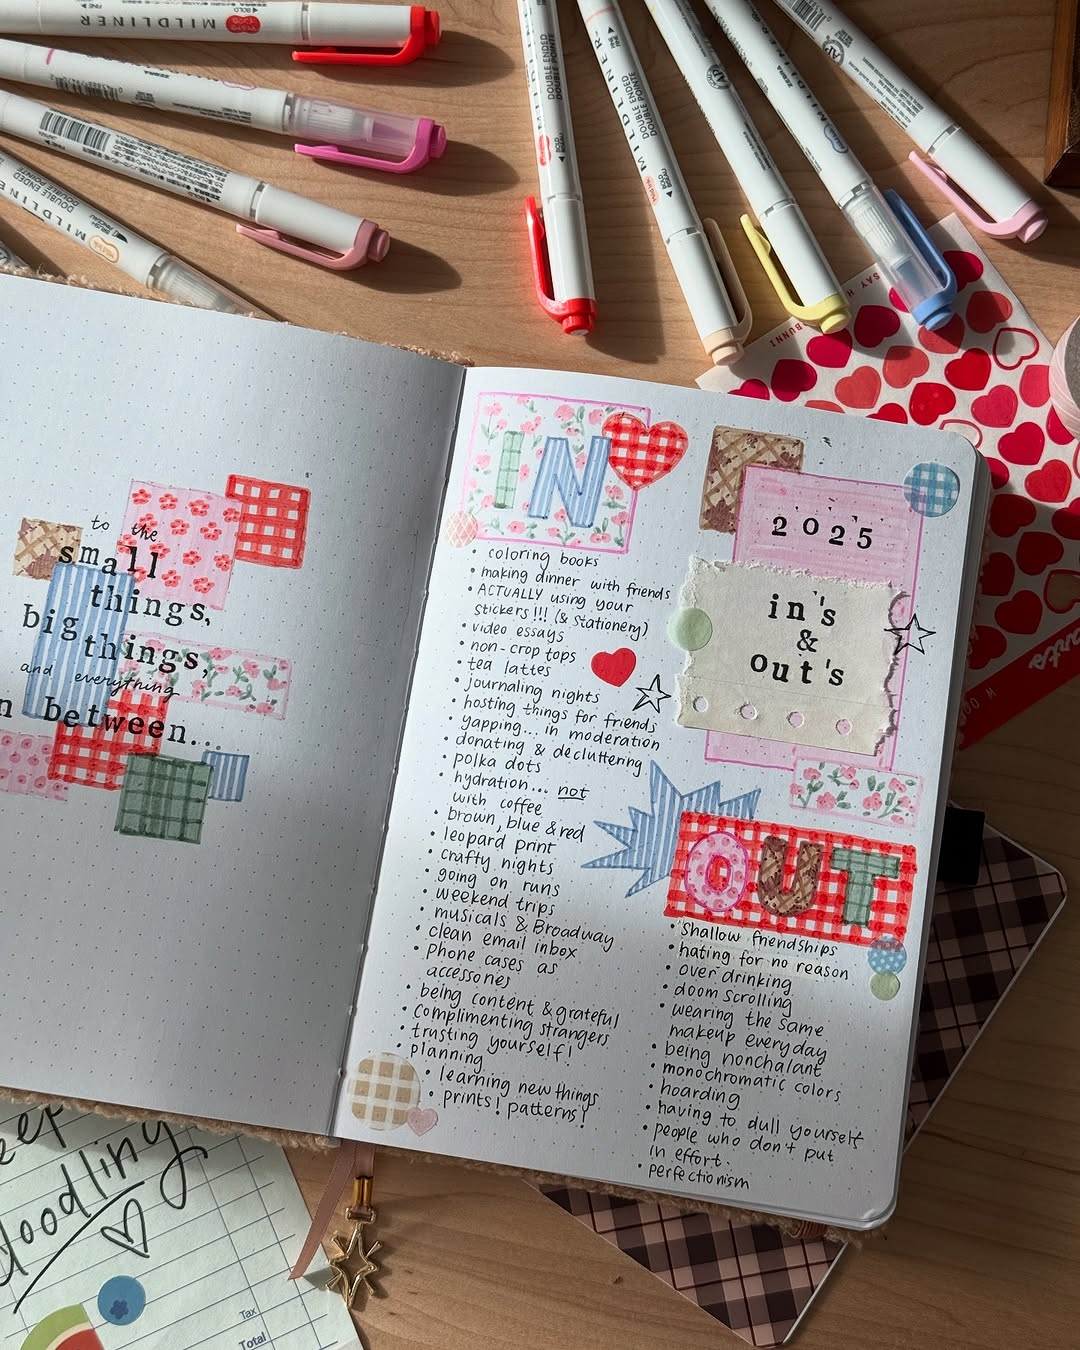 MILDLINER
BOLD
FINE
DOUBLE ENDED
MILDLINER
DOUBLE ENDED
DOUBLE POINTE
MILDLINER
DOUBLE ENDED
DOUBLE POINTE
MILDLINER
ZEBRA
SAY H
BUNNI
to the
small
things,
big things,
and everything
n between...
IN
coloring books
making dinner with friends
ACTUALLY using your
stickers!!! (& stationery)
video essays
non-crop tops
tea lattes
journaling nights
hosting things for friends
yapping... in moderation
donating & decluttering
polka dots
hydration... not
with coffee
brown, blue & red
leopard print
crafty nights
going on runs
weekend trips
musicals & Broadway
clean email inbox
phone cases as
accessories
being content & grateful
complimenting strangers
trusting yourself!
planning
learning new things
prints! patterns!
2025
in's
&
out's
OUT
shallow friendships
hating for no reason
over drinking
doom scrolling
wearing the same
makeup everyday
being nonchalant
monochromatic colors
hoarding
having to dull yourself
people who don't put
in effort.
perfectionism
eep
doodling
Tax
Total